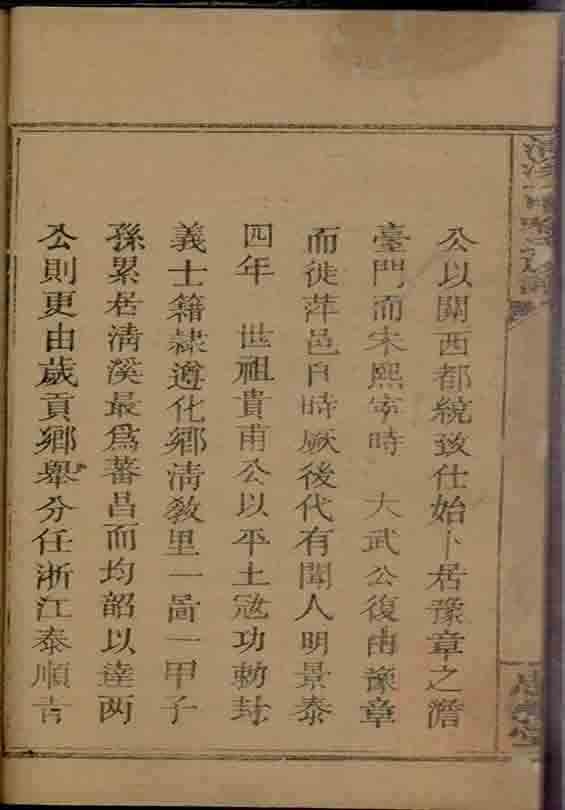 公以關西都統致仕始卜居豫章之澹
臺門而宋熙寧時　大武公復由豫章
而徙萍邑自時厥後代有聞人明景泰
四年　世祖貴甫公以平土寇功勅封
義士籍隸遵化鄉清教里一啚一甲子
孫累居淸溪最爲蕃昌而均韶以達两
公則更由歲貢鄉舉分任浙江泰順吉